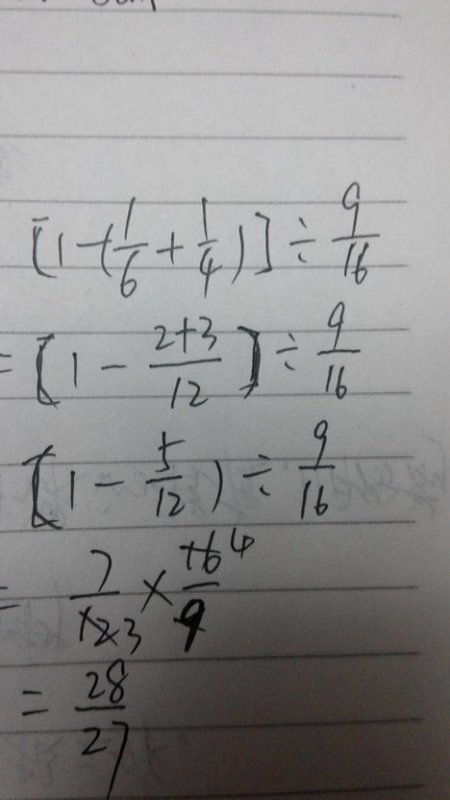 [1-(1/6+1/4)]÷9/16
=[1-2+3/12]÷9/16
[1-5/12)÷9/16
=7/12 3×16 4/9
=28/27